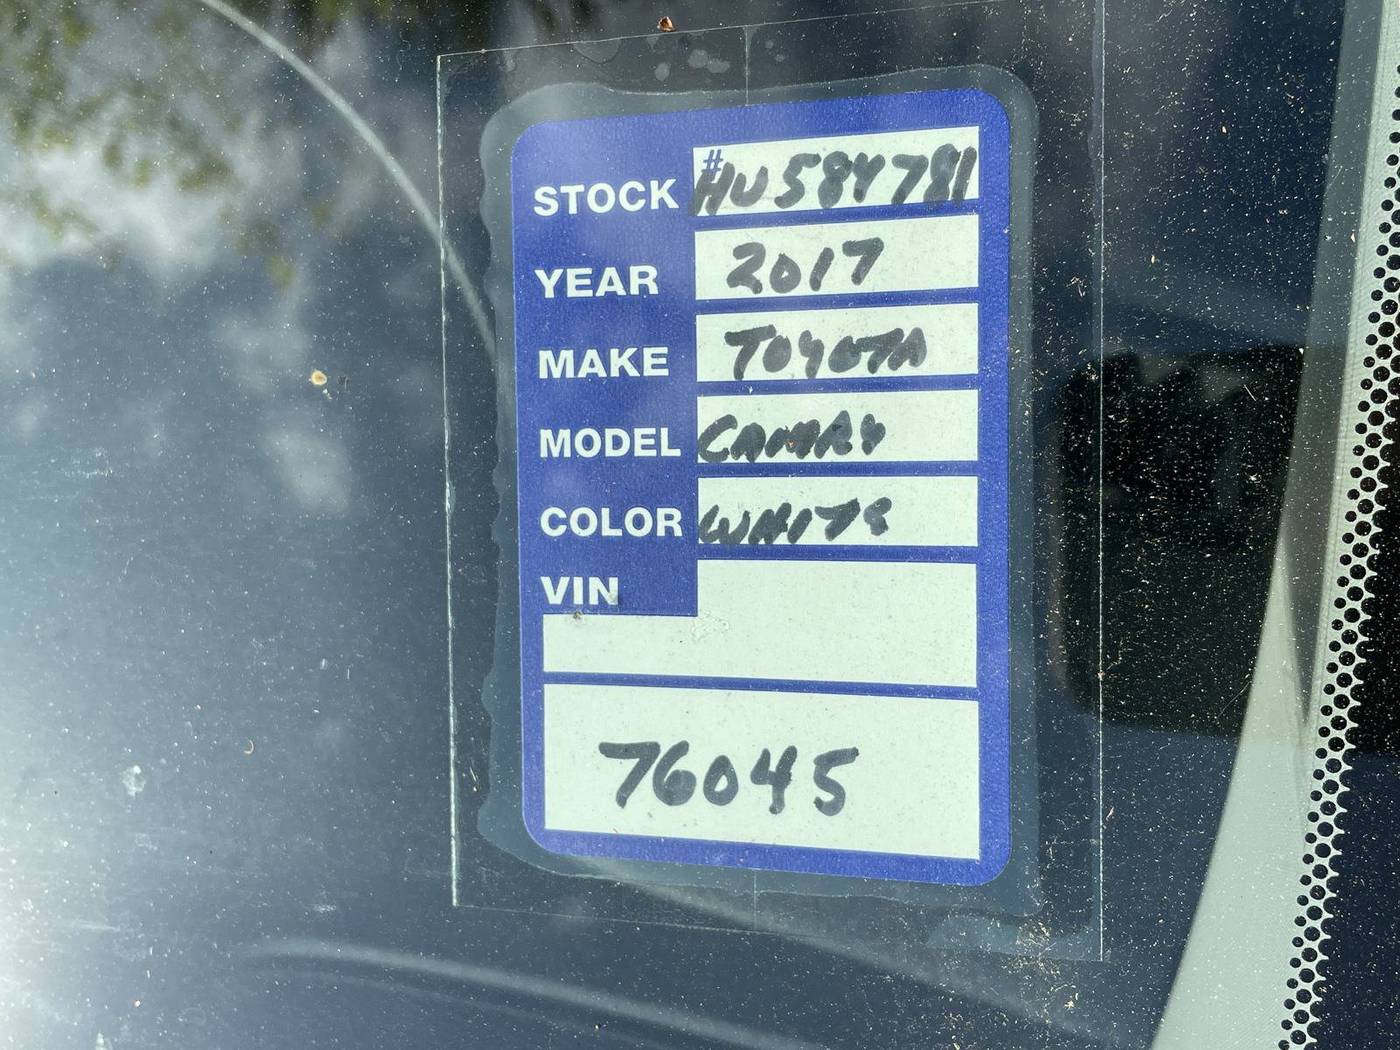 STOCK # HU584781
YEAR 2017
MAKE TOYOTA
MODEL CAMRY
COLOR WHITE
VIN
76045